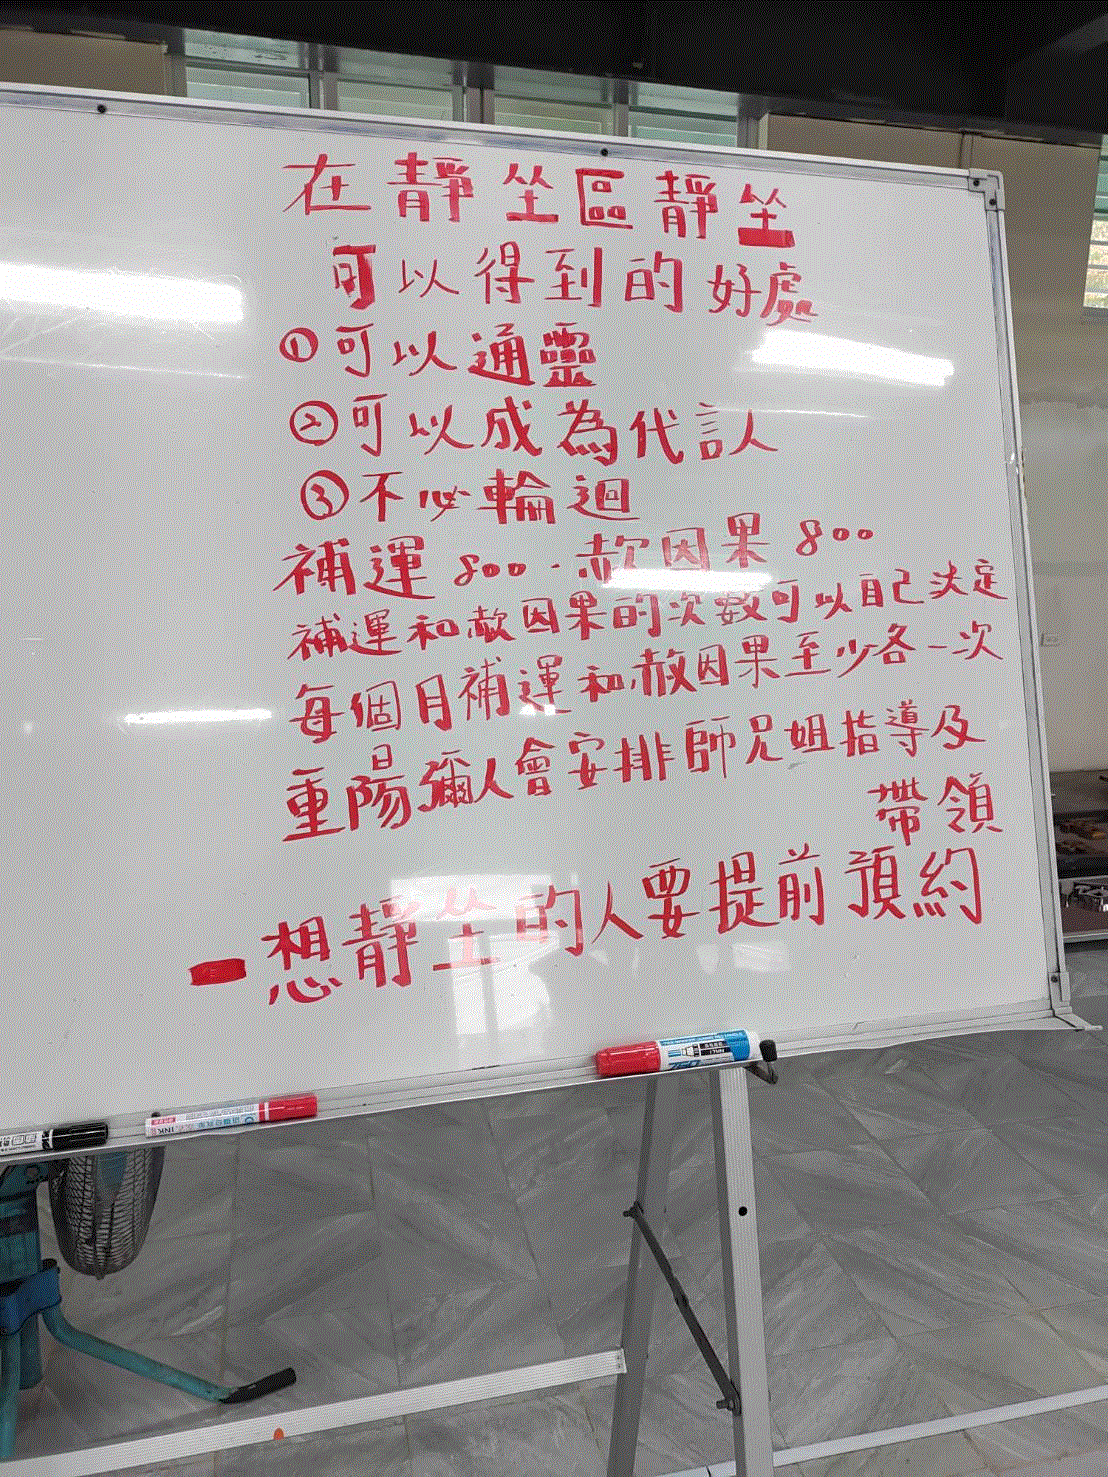 在靜坐區靜坐
可以得到的好處
①可以通靈
②可以成為代言人
③不必輪迴
補運800.赦因果800
補運和赦因果的次數可以自己決定
每個月補運和赦因果至少各一次
重陽日彌人會安排師兄姐指導及
帶領
想靜坐的人要提前預約
INK